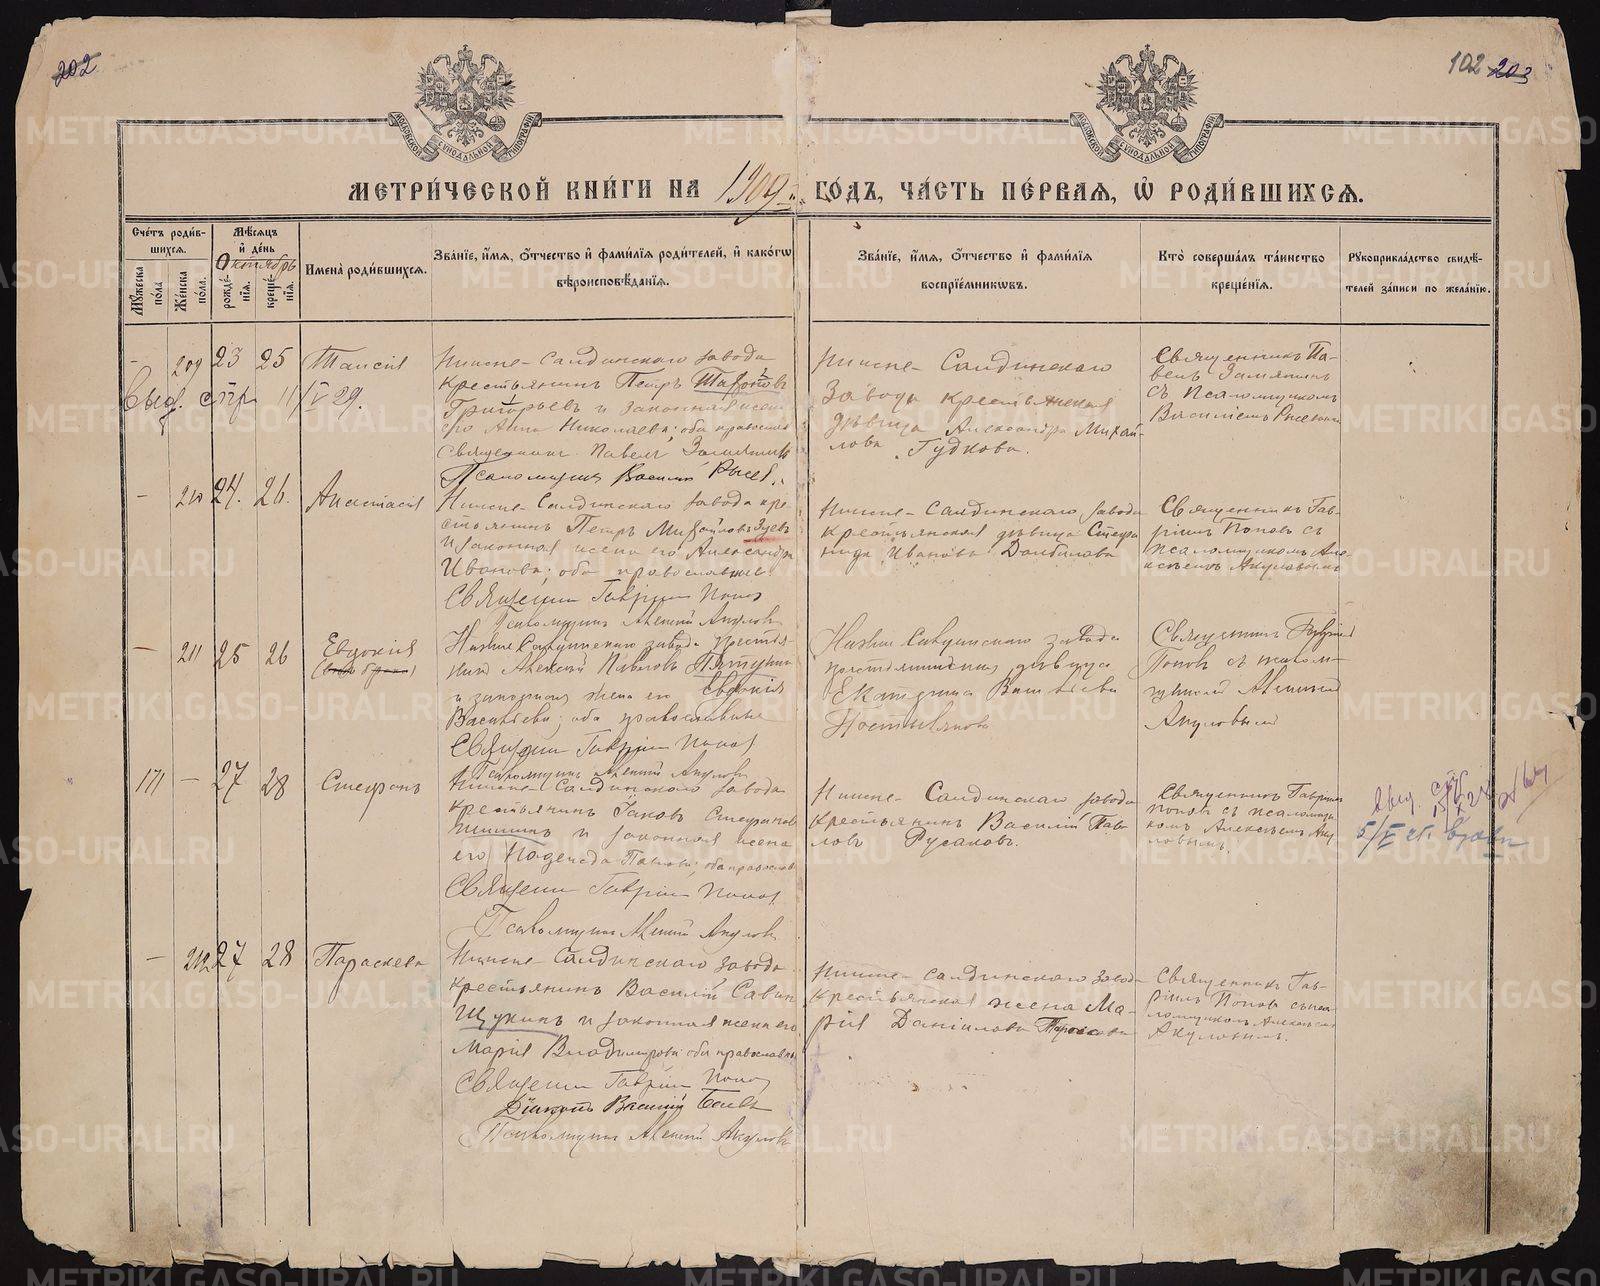 202
102 203
МОСКОВСКОЙ СѴНОДАЛЬНОЙ ТИПОГРАФІИ
МОСКОВСКОЙ СѴНОДАЛЬНОЙ ТИПОГРАФІИ
МЕТРИ́ЧЕСКОЙ КНИ́ГИ НА 1909 ГО́ДЪ, ЧА́СТЬ ПЕ́РВАЯ, Ѽ РОДИ́ВШИХСЯ.
Сче́тъ роди́вшихся.
Мꙋжеска по́ла
Же́нска по́ла.
Мѣ́сяцъ и де́нь
Октябрь
рожде́нїя.
креще́нїя.
Имена̀ роди́вшихся.
Зва́нїе, и́мя, о́тчество и фами́лїя роди́телей, и како́гѡ
вѣроисповѣ́данїя.
Зва́нїе, и́мя, о́тчество и фами́лїя
воспрїе́мникѡвъ.
Кто̀ соверша́лъ та́инство
креще́нїя.
Рꙋкоприкла́дство свидѣ́телей за́писи по жела́нїю.
- 209 23 25 Таисія
Нижне-Салдинскаго завода
крестьянинъ Петръ
Григорьевъ и законная жена
его Анна Николаева; оба православ
Священникъ Павелъ Замятинъ
Псаломщикъ Василій
Нижне-Салдинскаго
завода крестьянская
дѣвица Александра Михай-
лова Гудкова.
Священникъ Па-
велъ Замятинъ
съ псаломщикомъ
Василіемъ
11/V 29.
- 210 24. 26. Анастасія
Нижне-Салдинскаго завода кре-
стьянинъ Петръ Михайловъ Зуевъ
и законная жена его Александра
Иванова; оба православные.
Священникъ Гавріилъ Поповъ
Псаломщикъ Алексій Акуловъ
Нижне-Салдинскаго завода
крестьянская дѣвица Стефа
нида Иванова Долбилова
Священникъ Гав-
ріилъ Поповъ съ
псаломщикомъ Але-
ксѣемъ Акуловымъ
- 211 25 26 Евдокія
Нижне-Салдинскаго завода крестья-
нинъ Алексій Павловъ
и законная жена его Евдокія
Васильева; оба православные
Священникъ Гавріилъ Поповъ
Псаломщикъ Алексій Акуловъ
Нижне-Салдинскаго завода
крестьянская дѣвица
Екатерина Васильева
Священникъ Гавріилъ
Поповъ съ псалом-
щикомъ Алексіемъ
Акуловымъ
171 - 27 28 Стефанъ
Нижне-Салдинскаго завода
крестьянинъ Іаковъ Стефановъ
и законная жена
его Надежда Павлова; оба православ
Священникъ Гавріилъ Поповъ
Псаломщикъ Алексій Акуловъ
Нижне-Салдинскаго завода
крестьянинъ Василій Пав-
ловъ Русаковъ.
Священникъ Гавріилъ
Поповъ съ псаломщи
комъ Алексѣемъ Аку
ловымъ.
- 212 27 28 Параскева
Нижне-Салдинскаго завода
крестьянинъ Василій Савин
Щукинъ и законная жена его
Марія Владимірова; оба православны
Священникъ Гавріилъ Поповъ
Діаконъ Василій
Псаломщикъ Алексій Акуловъ
Нижне-Салдинскаго завод
крестьянская жена Ма-
рія Даніилова
Священникъ Гав-
ріилъ Поповъ съ пса
ломщикомъ Алексѣемъ
Акуловымъ.
METRIKI.GASO-URAL.RU